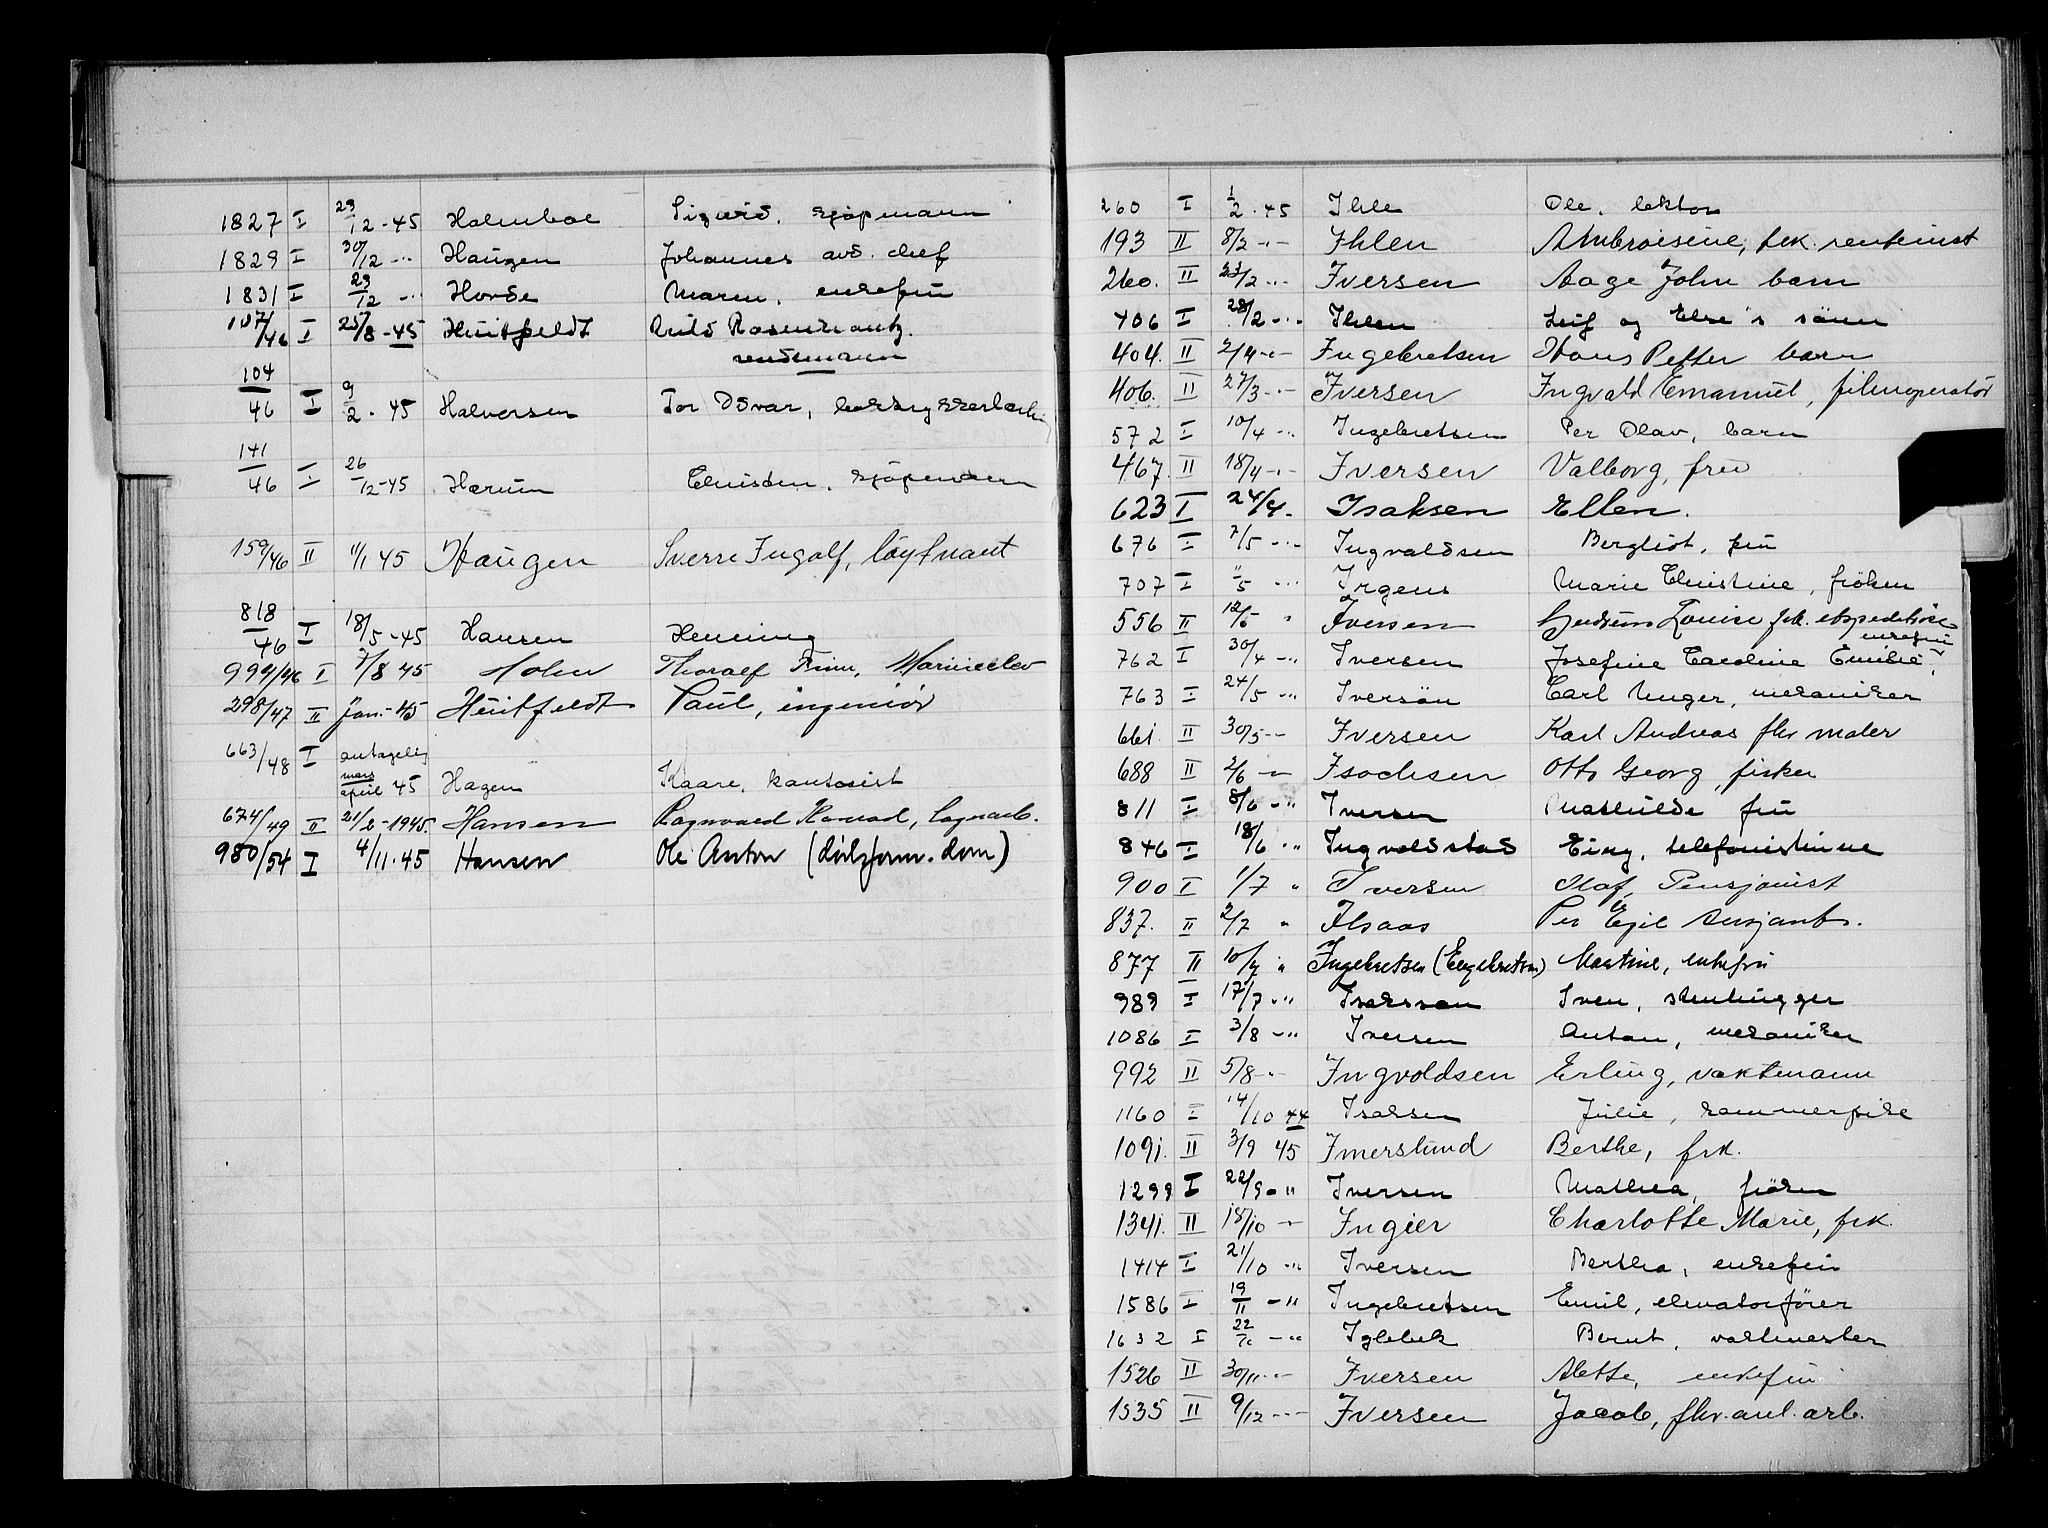 1827 I 29/12-45 Holmboe Sigurd, sjøpmann
1829 I 30/12 -"- Haugen Johannes avd. chef
1831 I 29/12 -"- Hovde Maren, enkefru
107/46 I 25/8-45 Huitfeldt Arild Rosenkrantz.
104/46 I 9/2. 45 Halversen Tor Odvar,
141/46 I 26/12-45 Hærum Christen, kjøpmann
159/46 II 11/1 45 Haugen Sverre Ingolf, løytnant
818/46 I 18/5-45 Hansen Henning
994/46 I 7/8 45 Holm Thoralf Finn, Marineelev
298/47 II Jan.-45 Huitfeldt Paul, ingeniör
663/48 I antagelig
mars
april 45 Hagen Kaare, kontorist
674/49 II 21/2-1945. Hansen Ragnvald Konrad, lagerarb.
980/54 I 4/11.45 Hansen Ole Anton (dödsform. dom)
260 I 1/2.45 Ihle Ole, lektor
193 II 8/2 -"- Ihlen Ambroisine, frk. rentenist
260. II 23/2 -"- Iversen Aage John barn
406 I 28/2 -"- Ihlen Leif og Else's sönn
404. II 2/4 -"- Ingebretsen Hans Petter barn
406. II 27/3 -"- Iversen Ingvald Emanuel, filmoperatör
572 I 10/4 -"- Ingebretsen Per Olav, barn
467. II 18/4 -"- Iversen Valborg, frue
623 I 24/4- Isaksen Ellen.
676 I 7/5 -"- Ingvaldsen Bergliot, fru
707 I "/5 -"- Irgens Marie Christine, fröken
556 II 12/5 " Iversen Gudrun Louise frk. ekspeditrise
enkefru
762 I 30/4 -"- Iversen Josefine Caroline Emilie,
763 I 24/5 -"- Iversön Carl Unger, mekaniker
661. II 30/5 -"- Iversen Karl Andreas fhv maler
688 II 2/6 -"- Isachsen Otto Georg, fisker
811 I 8/6 -"- Iversen Mathilde fru
846 I 18/6 -"- Ingvaldstad Einy, telefonistinne
900 I 1/7 " Iversen Olaf, Pensjonist
837. II 2/7 " Ilsaas Per Egil
877 II 10/7 " Ingebretsen (Engebretsen) Martine, enkefru
989 I 17/7 -"- Isaksson Sven, stenhugger
1086 I 3/8 -"- Iversen Anton, mekaniker
992 II 5/8 -"- Ingvoldsen Erling, vaktmann
1160 I 14/10 44 Isaksen Julie, kammerpike
1091. II 3/9 45 Imerslund Berthe, frk.
1299 I 22/9 -"- Iversen Mathea, fröken
1341. II 18/10 -"- Ingier Charlotte Marie, frk.
1414 I 21/10 -"- Iversen Bertha, enkefru
1586 I 19/11 -"- Ingebretsen Emil, elevatorförer
1632 I 22/11 -"- Bernt, vaktmester
1526 II 30/11 -"- Iversen Alette, enkefru
1535 II 9/12 -"- Iversen Jacob, fhv. anl. arb.